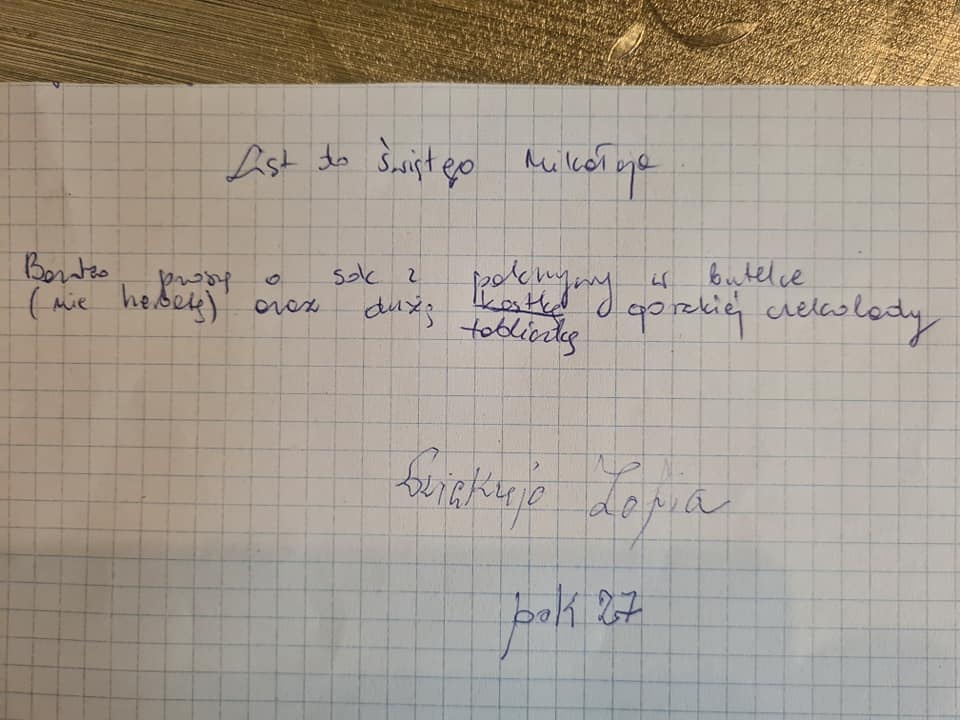 List do Świętego Mikołaja
Bardzo proszę o sok z pokrzywy w butelce
(nie herbatę) oraz dużą kostkę gorzkiej czekolady
tabliczkę
Dziękuję Zofia
pok 27